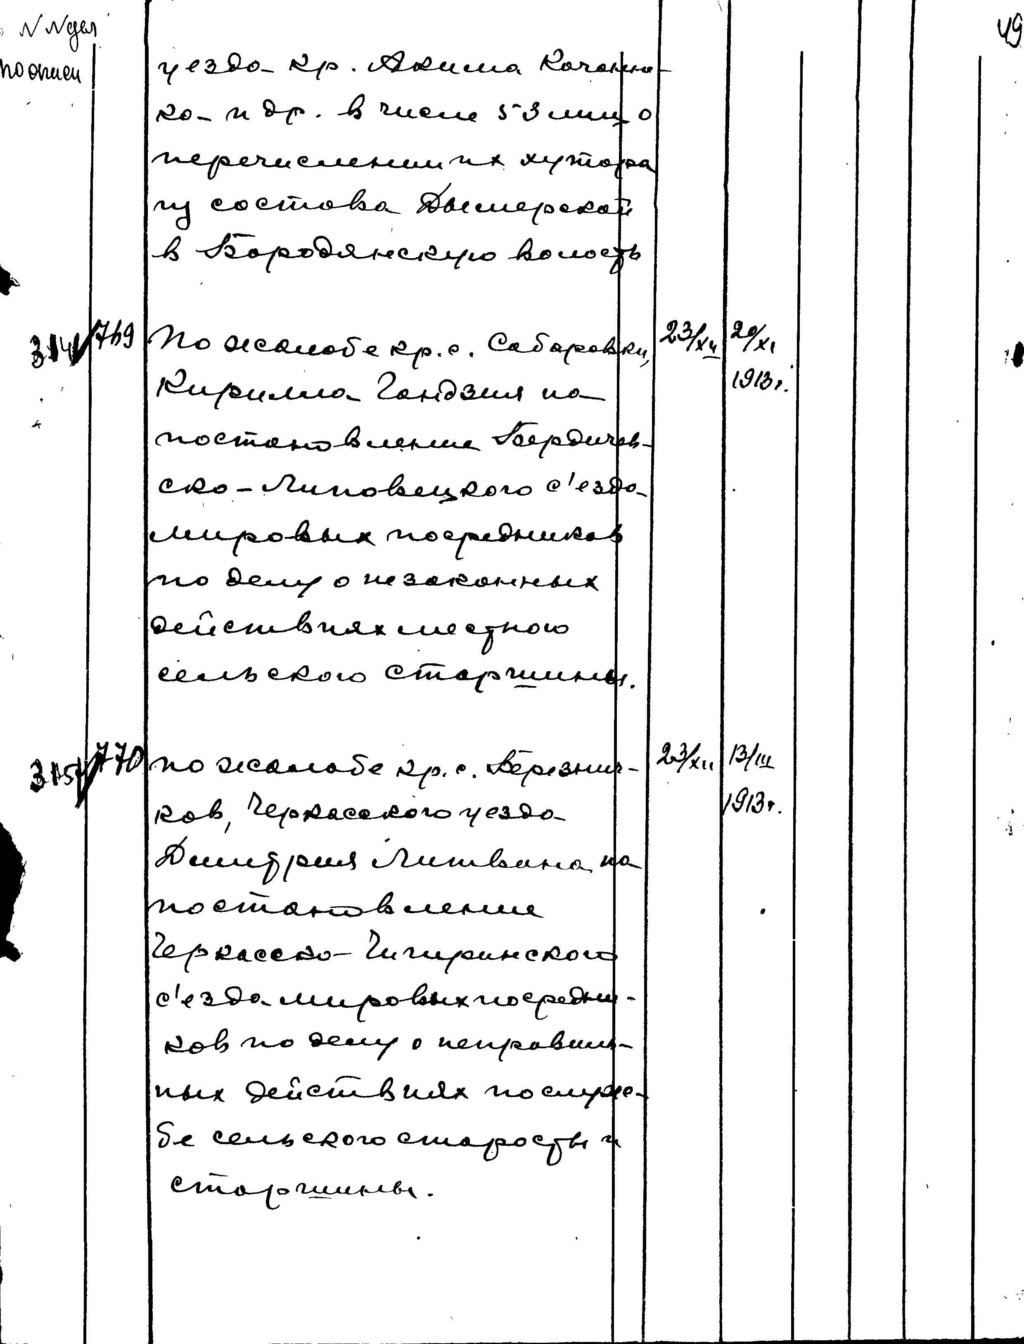 49
N N дел
по описи
уезда кр. Акима Качанно-
ко- и др. в числе 53 лиц о
перечислении их хутора
из состава Дымерской
в Бородянскую волость
314 769 По жалобе кр. с. Сабаровки, 23/XII 20/XI
Кирилла Гандзия на 1913 г.
постановление Бердичев-
ско-Липовецкого с'езда
мировых посредников
по делу о незаконных
действиях местного
сельского старшины.
315 770 По жалобе кр. с. Березня- 23/XII 13/III
ков, Черкасского уезда 1913 г.
Дмитрия Литвина на
постановление
Черкасско-Чигиринского
с'езда мировых посредни-
ков по делу о неправиль-
ных действиях по служ-
бе сельского старосты и
старшины.